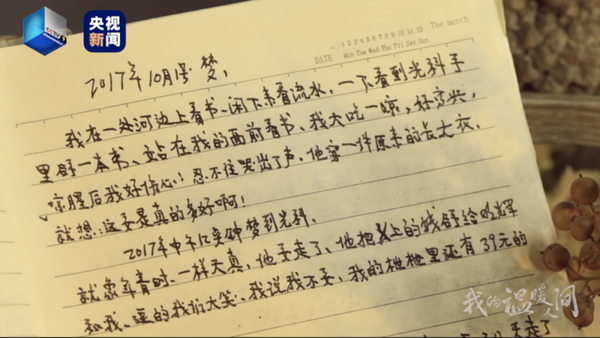 CCTV
央视
新闻
1 2 3 4 5 6 7 8 9 10 11 12 The month
DATE Mon Tue Wed Thu Fri Sat Sun
2017年10月1号 梦,
我在一处河边上看书、闲下来看流水,一下看到光科手
里拿一本书、站在我的面前看书、我大吃一惊,好高兴,
惊醒后我好伤心!忍不住哭出了声,他穿一件原来的长大衣,
就想:这要是真的多好啊!
2017年中午 梦到光科,
就象年青时一样天真,他要走了、他把 上的钱都给 辉
和我、逗的我们大笑、我说我不要,我的 里还有39元的
要走了
我的温暖人间